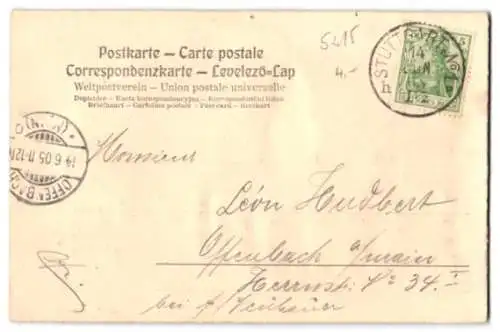 Postkarte — Carte postale
Correspondenzkarte — Levelező-Lap
Weltpostverein — Union postale universelle
Dopisnice — Karta korespondencyjna — Korespondenční lístek
Briefkaart — Cartolina postale — Post card — Brefkort
5215
4.-
STUTTGART
14
h
5
OFFENBACH
(MAIN)
19.6.05.11-12N
Monsieur
Léon Hudbert
Offenbach a/main
Herrnstr. No 34. I
bei